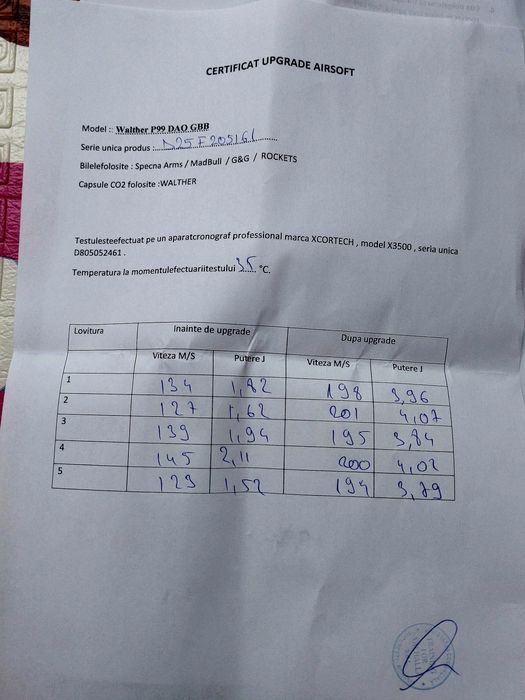 CERTIFICAT UPGRADE AIRSOFT
Model :: Walther P99 DAO GBB
Serie unica produs :. D25F205161
Bilelefolosite : Specna Arms / MadBull / G&G / ROCKETS
Capsule CO2 folosite :WALTHER
Testulesteefectuat pe un aparatcronograf professional marca XCORTECH , model X3500 , seria unica
D805052461 .
Temperatura la momentulefectuariitestului 35 °C.
Lovitura Inainte de upgrade Dupa upgrade
Viteza M/S Putere J Viteza M/S Putere J
1 134 1,82 198 3,96
2 127 1,62 201 4,07
3 139 1,94 195 3,84
4 145 2,11 200 4,02
5 123 1,52 194 3,79